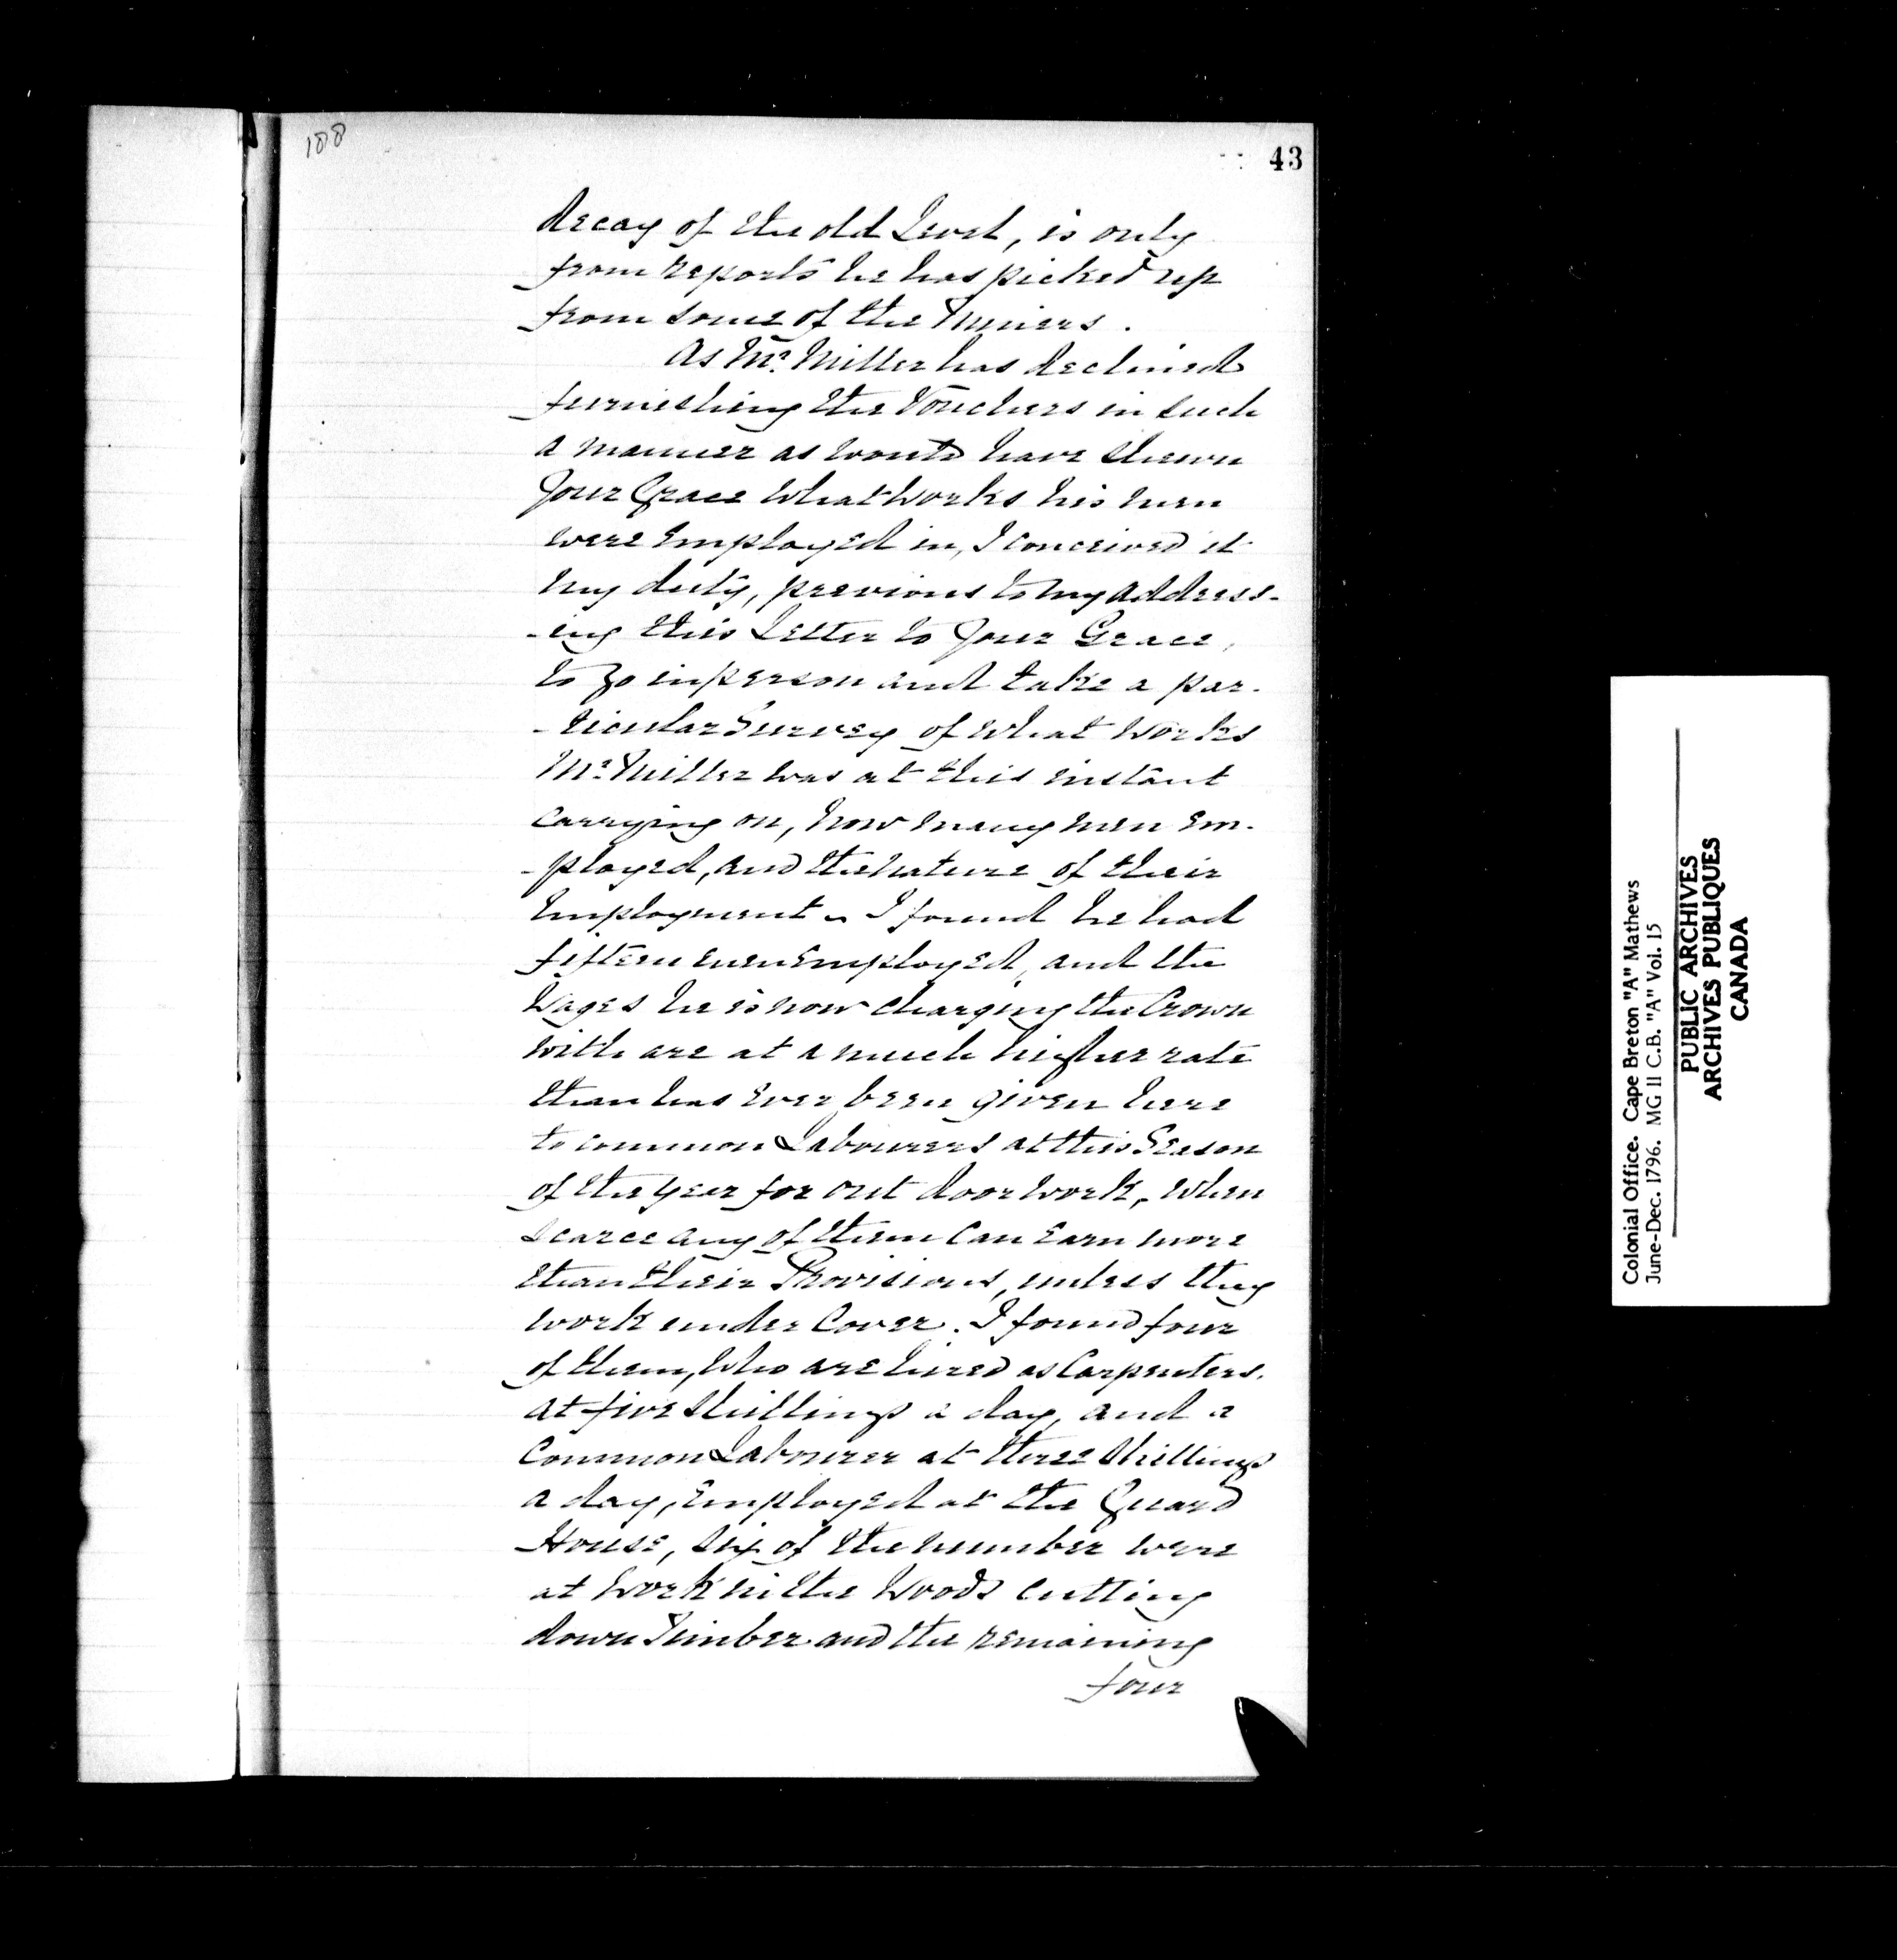 188
43
decay of the old Level, is only
from reports he has picked up
from some of the Miners.
As Mr. Miller has declined
furnishing the Vouchers in such
a manner as would have shewn
Your Grace what Works his men
were Employed in, I conceived it
my duty, previous to my address-
-ing this Letter to Your Grace,
to go in person and take a par-
-ticular Survey of what Works
Mr. Miller was at this instant
carrying on, how many men Em-
-ployed, and the nature of their
Employment - I found he had
fifteen men Employed, and the
Wages he is now charging the Crown
with are at a much higher rate
than has Ever been given here
to common Labourers at this Season
of the year for out door work, when
scarce any of them can Earn more
than their Provisions, unless they
work under Cover. I found four
of them, who are hired as Carpenters.
at five Shillings a day, and a
Common Labourer at three Shillings
a day, Employed at the Guard
House, six of the number were
at Work in the Woods cutting
down Timber and the remaining
four
Colonial Office. Cape Breton "A" Mathews
June-Dec. 1796. MG 11 C.B. "A" Vol. 15
PUBLIC ARCHIVES
ARCHIVES PUBLIQUES
CANADA